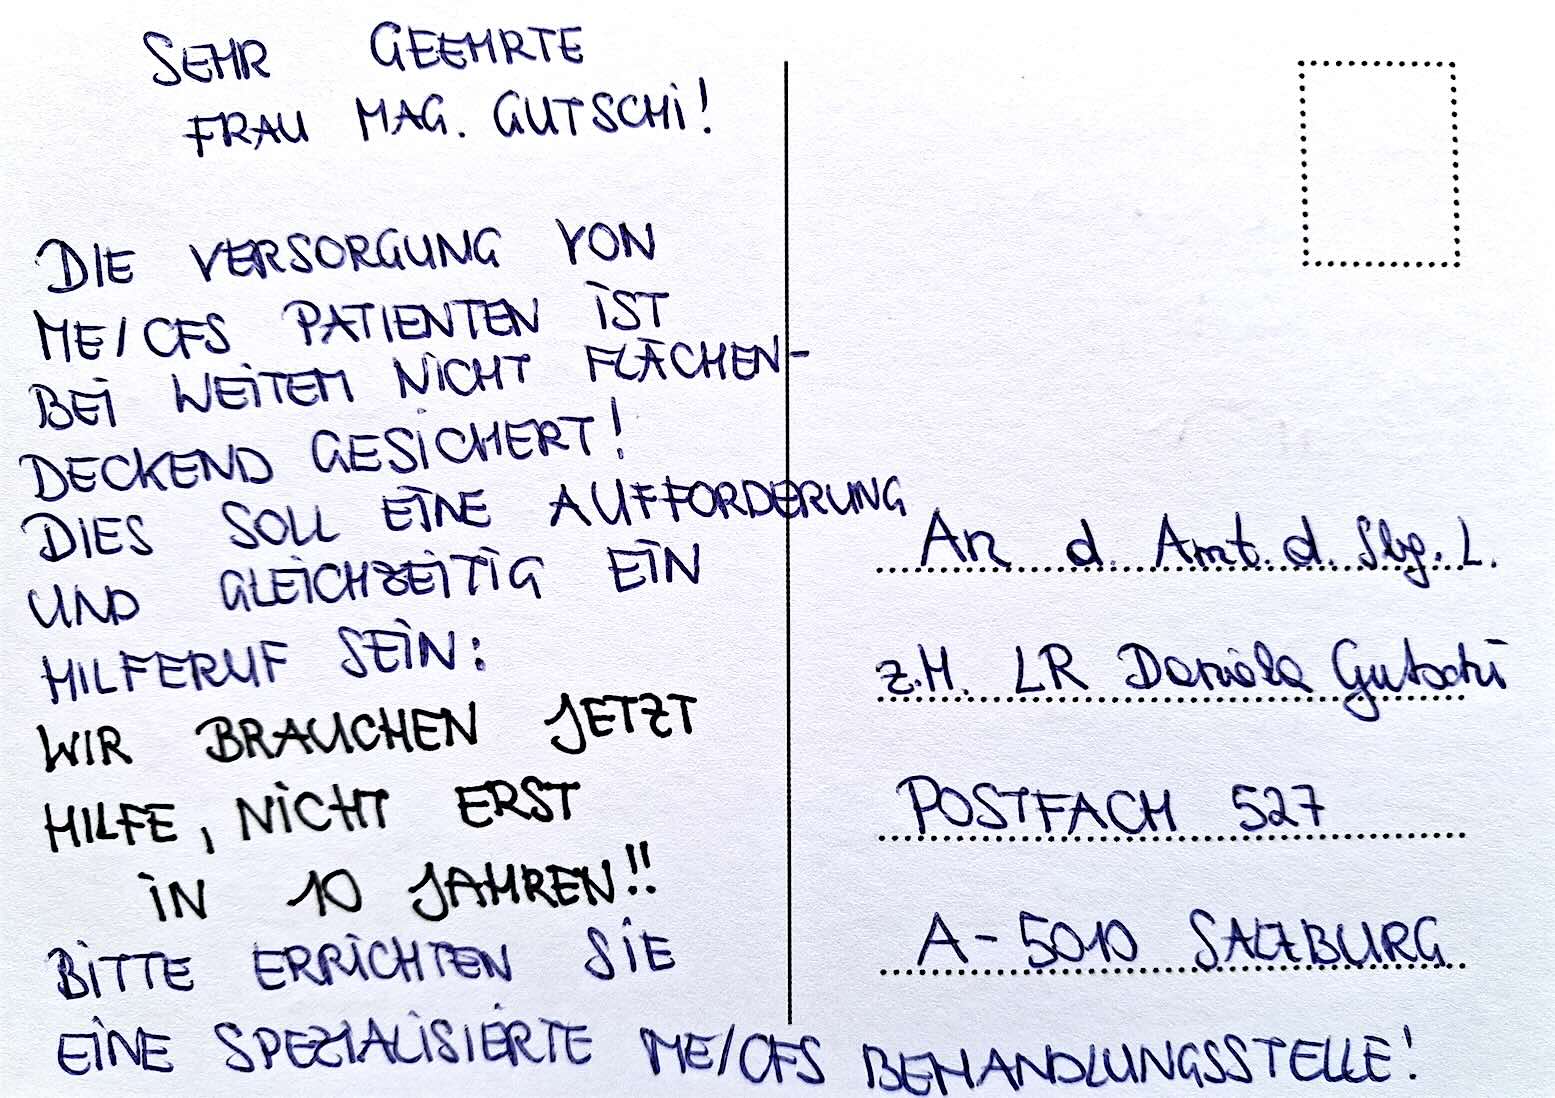 SEHR GEEHRTE
FRAU MAG. GUTSCHI!
DIE VERSORGUNG VON
ME/CFS PATIENTEN IST
BEI WEITEM NICHT FLÄCHEN-
DECKEND GESICHERT!
DIES SOLL EINE AUFFORDERUNG
UND GLEICHZEITIG EIN
HILFERUF SEIN:
WIR BRAUCHEN JETZT
HILFE, NICHT ERST
IN 10 JAHREN!!
BITTE ERRICHTEN SIE
EINE SPEZIALISIERTE ME/CFS BEHANDLUNGSSTELLE!
An d. Amt. d. Sbg. L.
z.H. LR Daniela Gutschi
POSTFACH 527
A-5010 SALZBURG